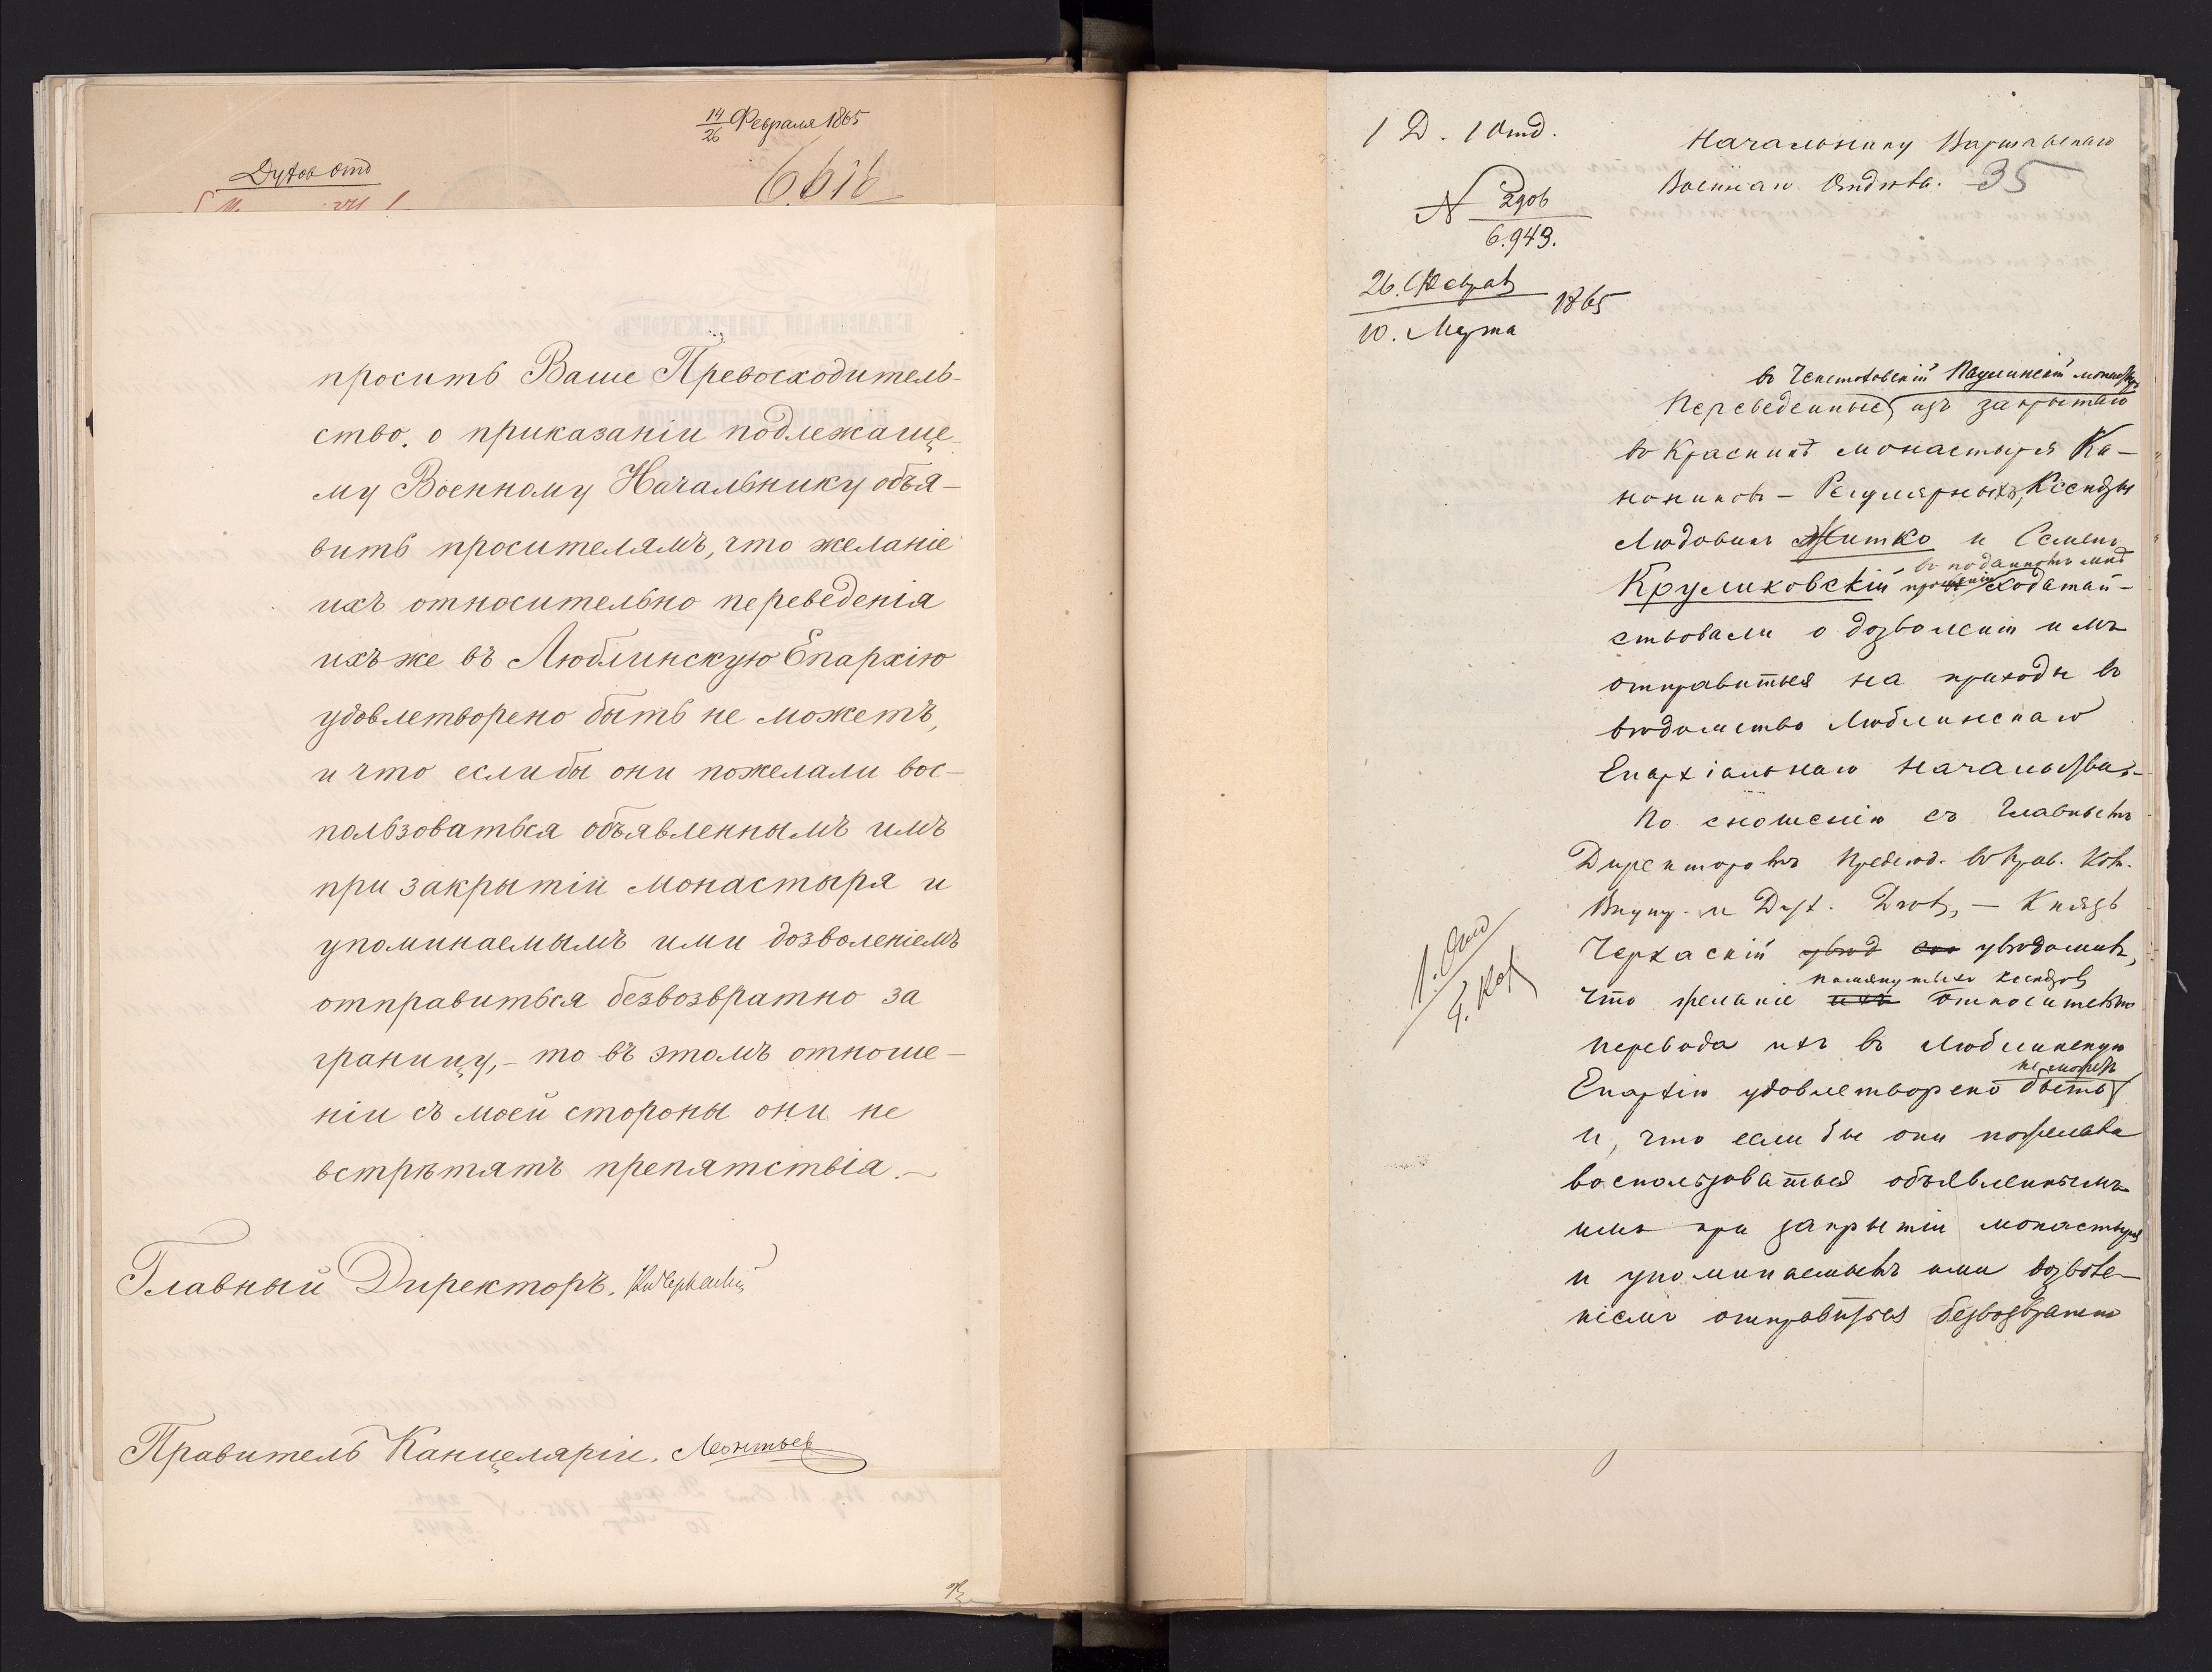 14/26 Февраля 1865
Духов Отд
6616
просить Ваше Превосходитель-
ство. о приказаніи подлежаще-
му Военному Начальнику объя-
вить просителямъ, что желаніе
ихъ относительно переведенія
ихъ же въ Люблинскую Епархію
удовлетворено быть не можетъ,
и что если бы они пожелали вос-
пользоваться объявленнымъ имъ
при закрытіи монастыря и
упоминаемымъ ими дозволеніемъ
отправиться безвозвратно за
границу, - то въ этомъ отноше-
ніи съ моей стороны они не
встрѣтятъ препятствія. -
Главный Директоръ, Кн Черкаскій
Правитель Канцеляріи, Леонтьев
1 Д. 1 Отд.
Начальнику Варшавскаго
Военнаго Отдѣла. 35
N 2906/6.943.
26. Феврал
10. Марта 1865
въ Ченстоховскій Паулинскій монастырь
Переведенные изъ закрытаго
въ Красникѣ монастыря Ка-
нониковъ - Регулярныхъ, Ксендзы
Людовикъ Житко и Семенъ
въ поданномъ мнѣ
Круликовскій прошеніи ходатай-
ствовали о дозволеніи имъ
отправиться на приходы въ
вѣдомство Люблинскаго
Епархіальнаго Начальства.
По сношенію съ Главнымъ
Директоромъ Предсѣд. въ Прав. Ком.
Внутр. и Дух. Дѣлъ, - Князь
Черкаскій увѣд увѣдомилъ,
помянутыхъ ксендзовъ
что желаніе ихъ относительно
перевода ихъ въ Люблинскую
не можетъ
Епархію удовлетворено быть
и, что если бы они пожелали
воспользоваться объявленнымъ
имъ при закрытіи монастыря
и упоминаемымъ ими дозволе-
ніемъ отправиться безвозвратно